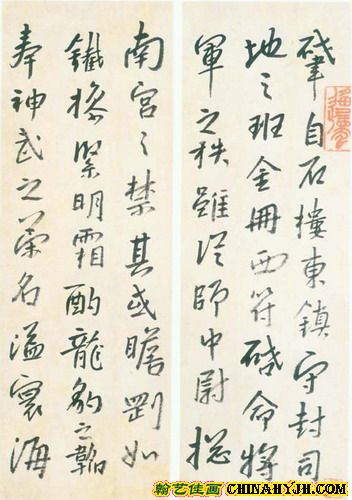 肇自石樓東鎮守封司
地之班金冊西符啟命將
軍之秩雖從師中尉摠
南宮之禁其或瞻劉如
鐵緊明霜酌龍豹之韜
奉神武之榮名溢寰海
翰艺佳画
CHINAHYJH.COM